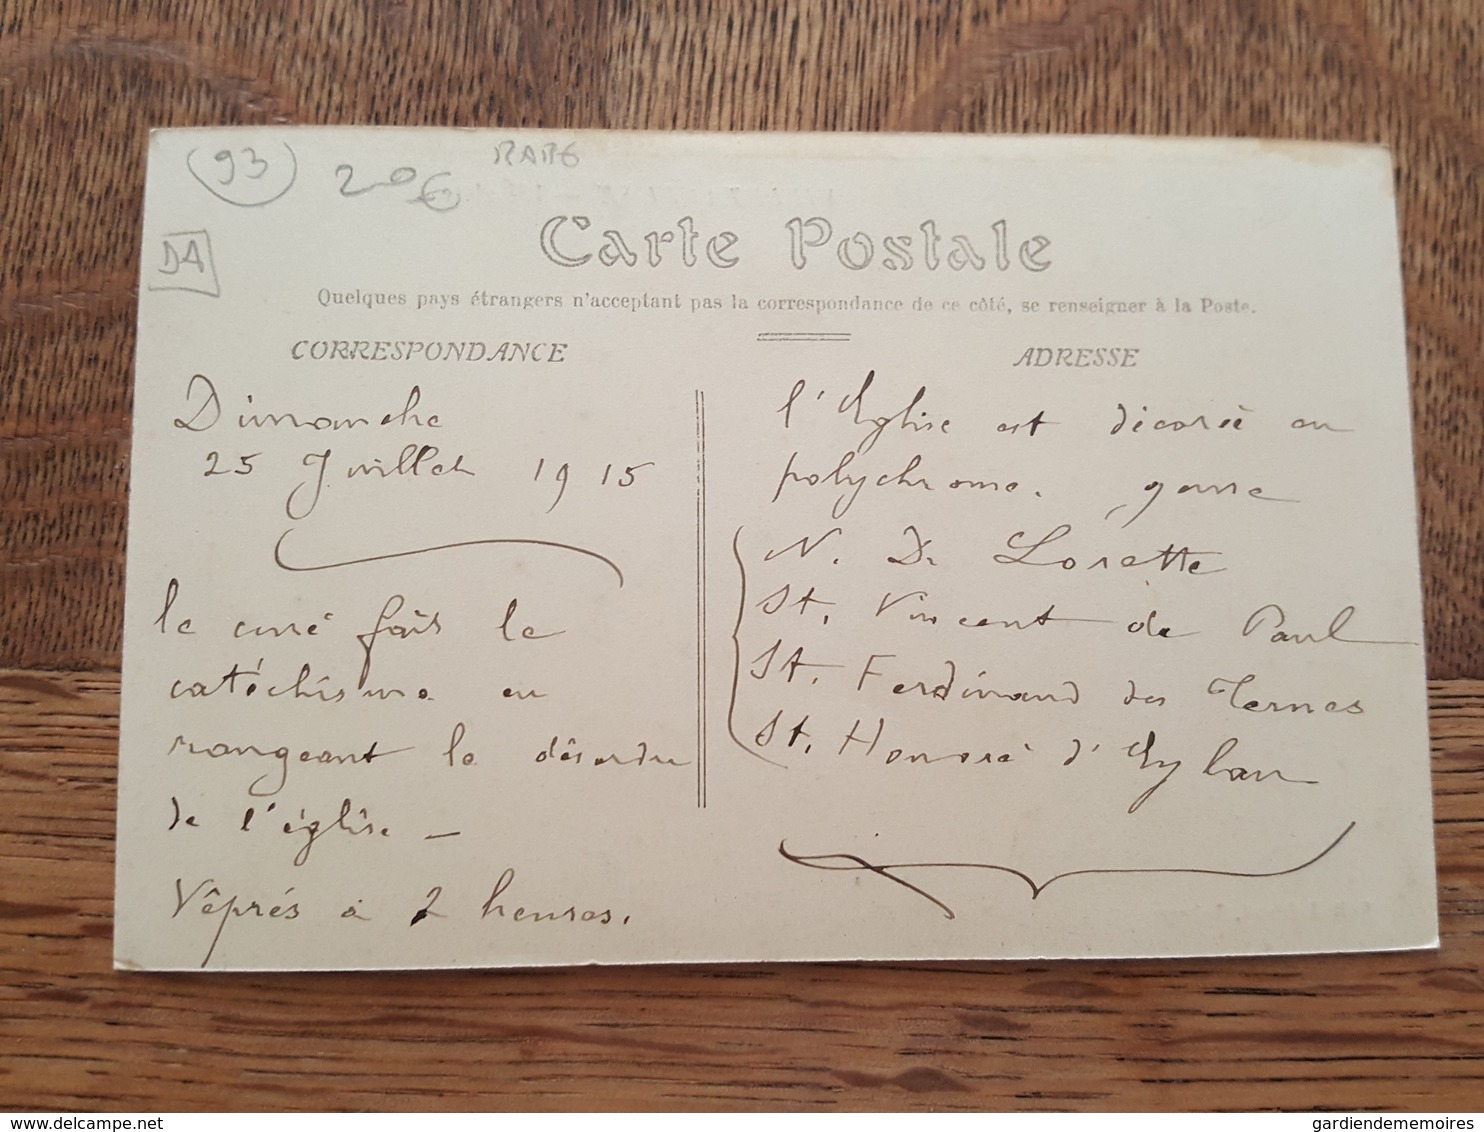 93
20€
RARE
D4
Carte Postale
Quelques pays étrangers n'acceptant pas la correspondance de ce côté, se renseigner à la Poste.
CORRESPONDANCE
Dimanche
25 Juillet 1915
le curé fais le
catéchisme en
rangeant le désordre
de l'église —
Vêprés à 2 heures.
ADRESSE
l'Eglise est décorée en
polychrome. genre
N. D. Lorette
St. Vincent de Paul
St. Ferdinand des Ternes
St. Honoré d'Eylau
delcampe.net
gardiendememoires